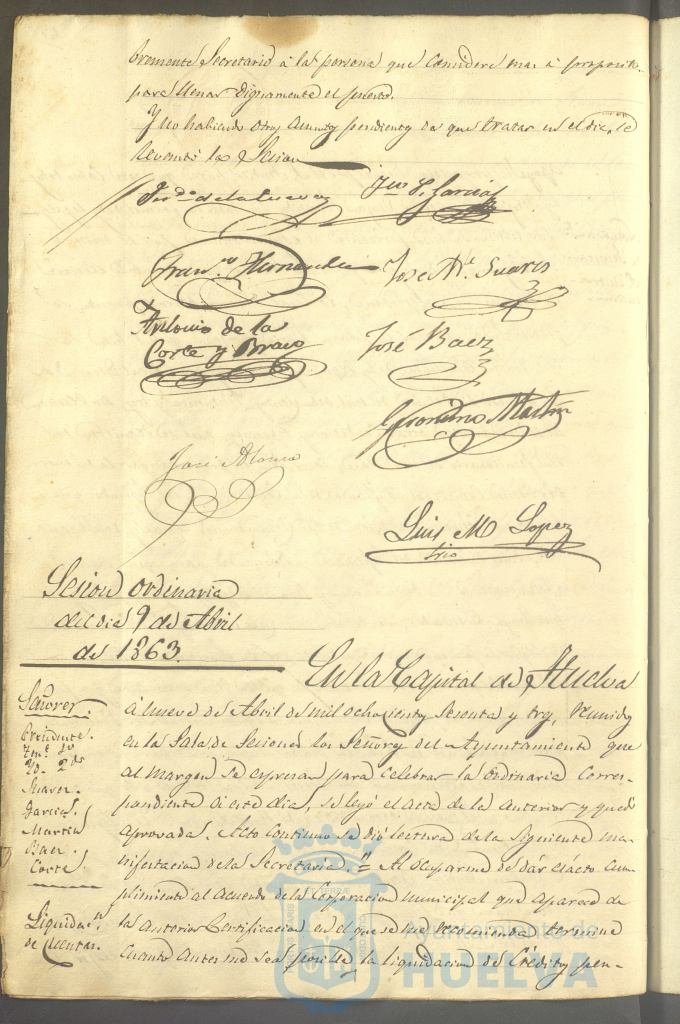 bremente Secretario á la persona que considere mas á proposito
para llenar dignamente el puesto.
Y no habiendo otros asuntos pendientes de que tratar en el dia, se
levantó la Sesion
Fern.do de la Cueva
J. Garcia
Fran.co Hernandez
José M.a Suares
Antonio de la
Corte y Bravo
José Baez
Geronimo Martin
José Alonso
Luis M Lopez
Srio
Sesion ordinaria
del dia 9 de Abril
de 1863.
En la Capital de Huelva
Señores
Presidente.
Tent.e 1.o
Yd. 2.do
Suarez.
Garcia.
Martin
Baez.
Corte
Liquidac.n
de Cuentas.
á nueve de Abril de mil ochocientos sesenta y tres, reunidos
en la Sala de Sesiones los Señores del Ayuntamiento que
al margen se espresan para celebrar la ordinaria corres-
pondiente á este dia, se leyó el acta de la anterior y quedó
aprovada. Acto continuo se dió lectura de la siguiente ma-
nifestacion de la Secretaría. "= Al ocuparme de dár exácto cum-
plimiento al acuerdo de la Corporacion municipal que aparece de
la anterior Certificacion en el que se me recomienda termine
cuanto antes me sea posible la liquidacion de Créditos pen-
Ayuntamiento de
HUELVA